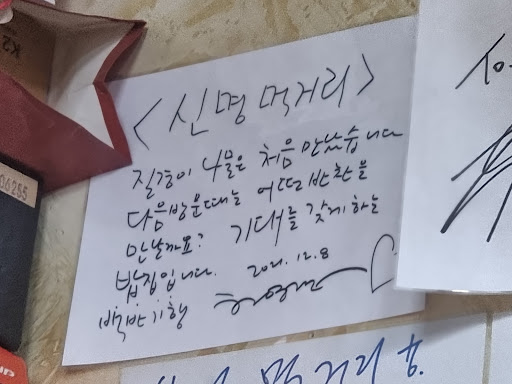 <신명 먹거리>
질경이 나물은 처음 만났습니다
다음 방문때는 어떤 반찬을
만날까요? 기대를 갖게하는
밥집입니다. 2021.12.8
백반기행
06255
K2